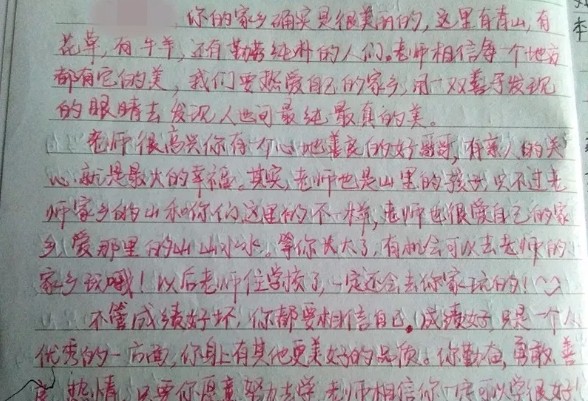 你的家乡确实是很美丽的,这里有青山,有
花草,有牛羊,还有勤劳纯朴的人们。老师相信每个地方
都有它的美,我们要热爱自己的家乡,用一双善于发现
的眼睛去发现人世间最纯最真的美。
老师很高兴你有个心地善良的好哥哥,有亲人的关
心就是最大的幸福。其实,老师也是山里的孩子,只不过老
师家乡的山和你们这里的不一样,老师也很爱自己的家
乡,爱那里的山山水水。等你长大了,有机会可以去老师的
家乡玩哦!以后老师住学校了,一定还会去你家玩的!
不管成绩好坏,你都要相信自己,成绩好只是一个人
优秀的一方面,你身上有其他更美好的品质。你勤奋,勇敢,善
热情,只要你愿意努力去学,老师相信你一定可以学很好